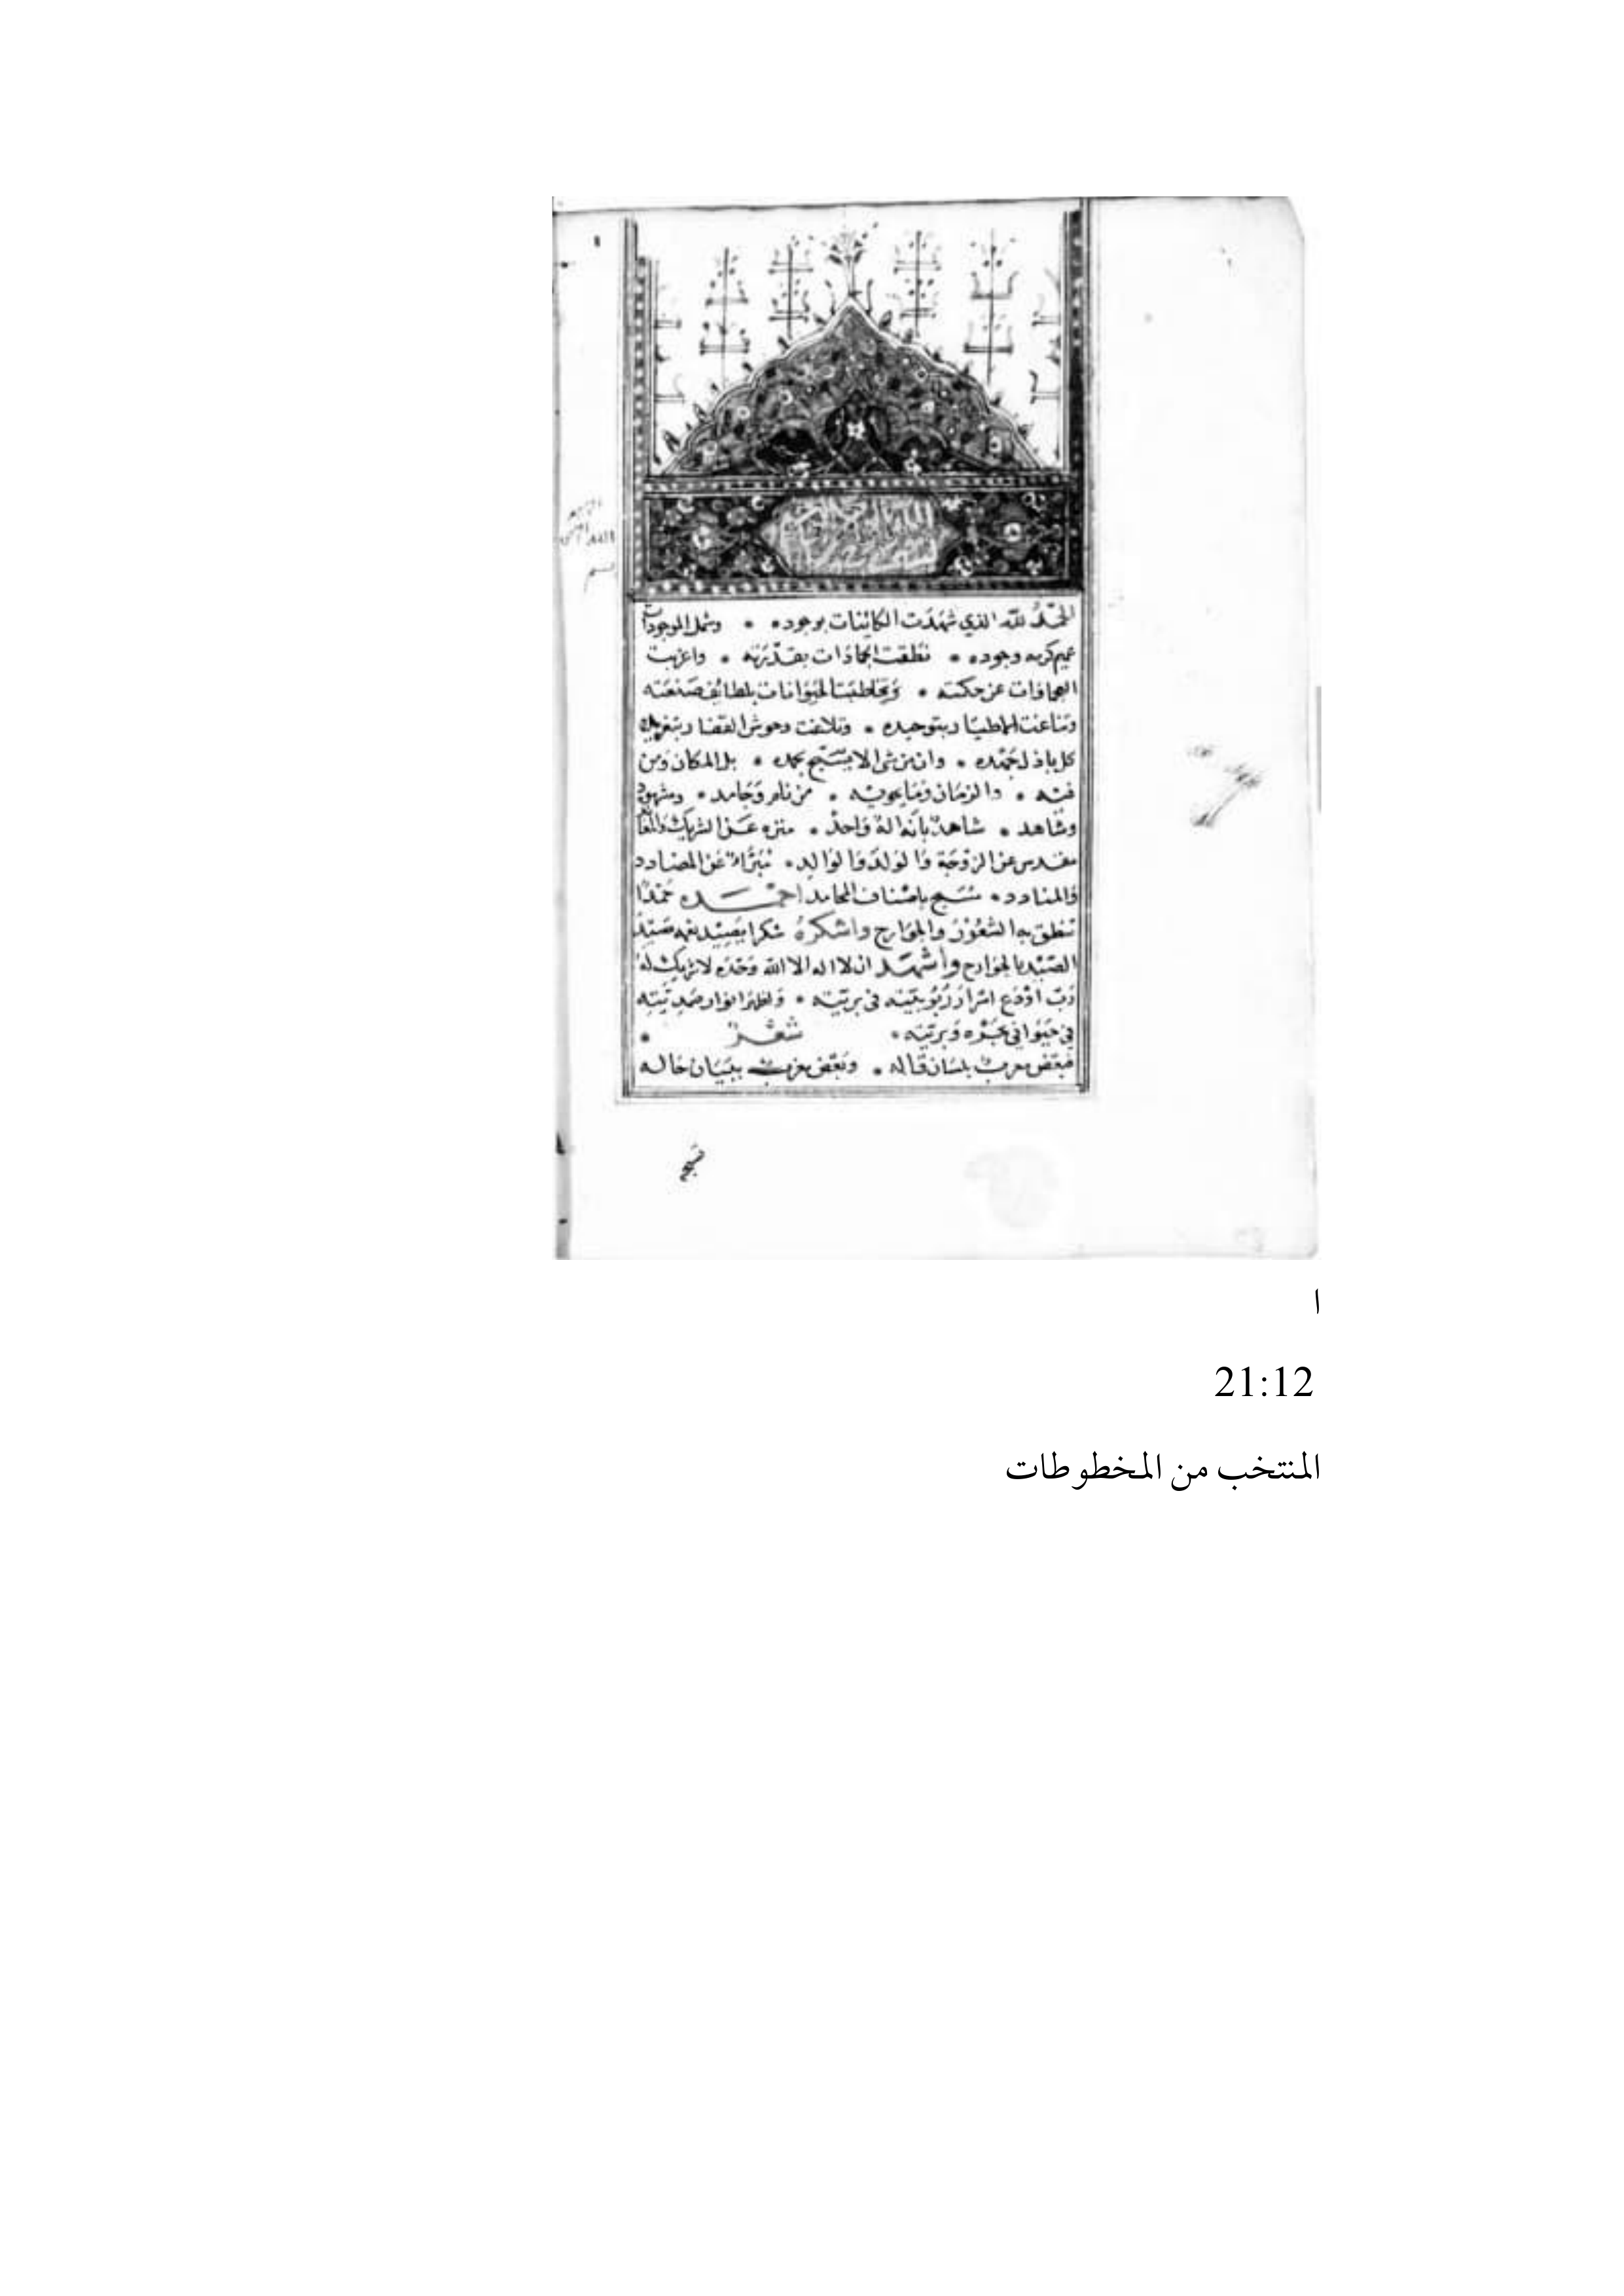 الحمدُ لله الذي شَهَدَت الكائنات بوجوده • وشمل الموجودات
عميم كرمه وجوده • نطقت الجمادات بقدرته • واعربت
العجماوات عن حكمته • وتخاطبت الحيوانات بلطائف صنعته
وتناغت الاطيار بتوحيده • وتلاغت وحوش القفار بتغريده
كل باذل جهده • وان من شى الا يسبح بحمده • بل المكان ومن
فيه • والزمان وما يحويه • من نام وجامد • ومشهود
وشاهد • شاهد بانه اله واحد • منزه عن الشريك
مقدس عن الزوجة والولد والوالد • مبرأ عن المضادد
والمنادد • مسبح باصناف المحامد احمده حمدًا
تنطق به الشعور والجوارح واشكره شكرا يصيد نعمه صيد
الصيد بالجوارح واشهد ان لا اله الا الله وحده لا شريك له
رب اودع اسرار ربوبيته فى بريته • واظهر انوار صمديته
في حيواني بحره وبريته • شعر •
فبعض معرب بلسان قاله • وبعض معرب ببيان حاله
تسبح
الله
بسم
١
ا
21:12
المنتخب من المخطوطات